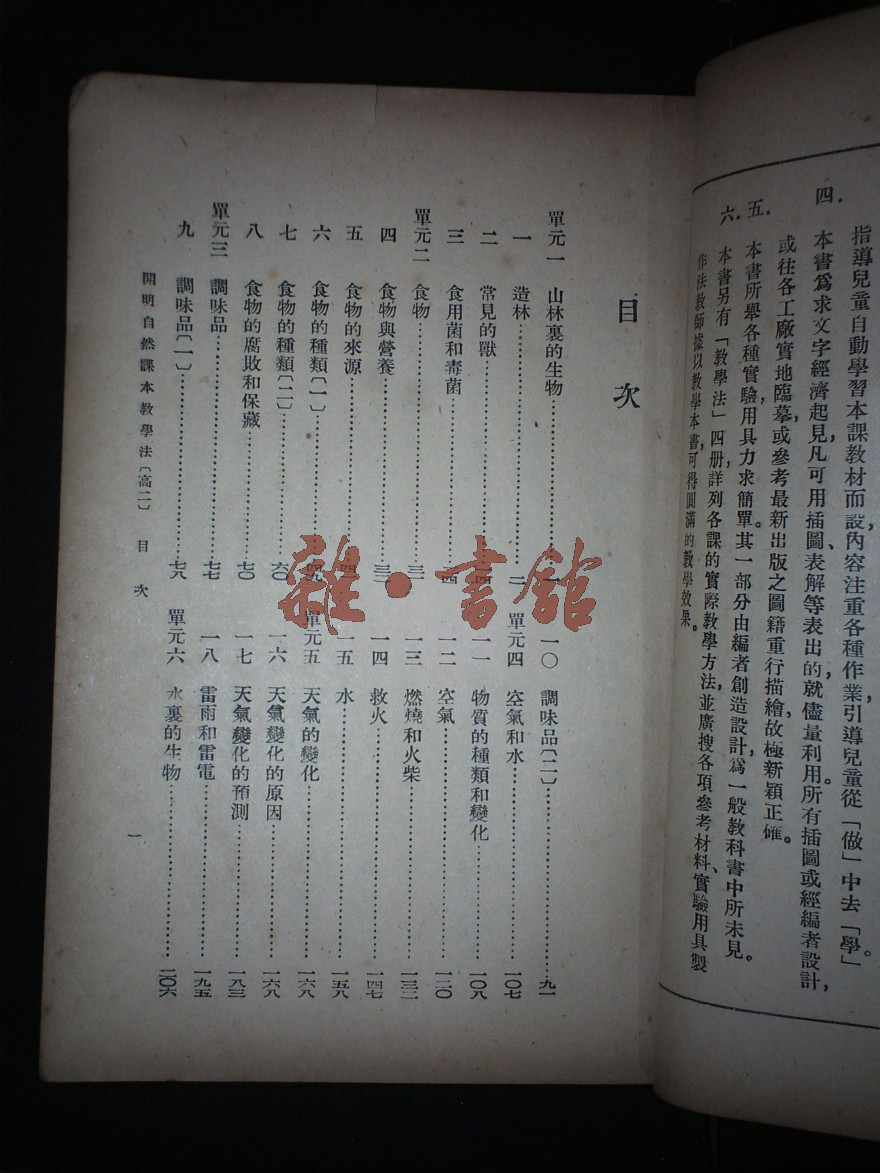 指導兒童自動學習本課教材而設，內容注重各種作業，引導兒童從「做」中去「學」。
四．本書爲求文字經濟起見，凡可用插圖表解等表出的，就儘量利用。所有插圖，或經編者設計，
或往各工廠實地臨摹，或參考最新出版之圖籍，重行描繪，故極新穎正確。
五．本書所舉各種實驗用具，力求簡單。其一部分由編者創造設計，爲一般教科書中所未見。
六．本書另有「教學法」四册，詳列各課的實際教學方法，並廣搜各項參考材料、實驗用具製
作法，教師據以教學本書，可得圓滿的教學效果。
目次
單元一 山林裏的生物
一 造林 二
二 常見的獸
三 食用菌和毒菌
單元二 食物
四 食物與營養
五 食物的來源
六 食物的種類〔一〕 四九
七 食物的種類〔二〕 六〇
八 食物的腐敗和保藏 七〇
單元三 調味品 七七
九 調味品〔一〕 七八
一〇 調味品〔二〕 九一
單元四 空氣和水 一〇七
一一 物質的種類和變化 一〇八
一二 空氣 一二〇
一三 燃燒和火柴 一三二
一四 救火 一四七
一五 水 一五八
單元五 天氣的變化 一六八
一六 天氣變化的原因 一六八
一七 天氣變化的預測 一八三
一八 雷雨和雷電 一九五
單元六 水裏的生物 二〇六
開明自然課本教學法〔高二〕 目次
一
雜·書館